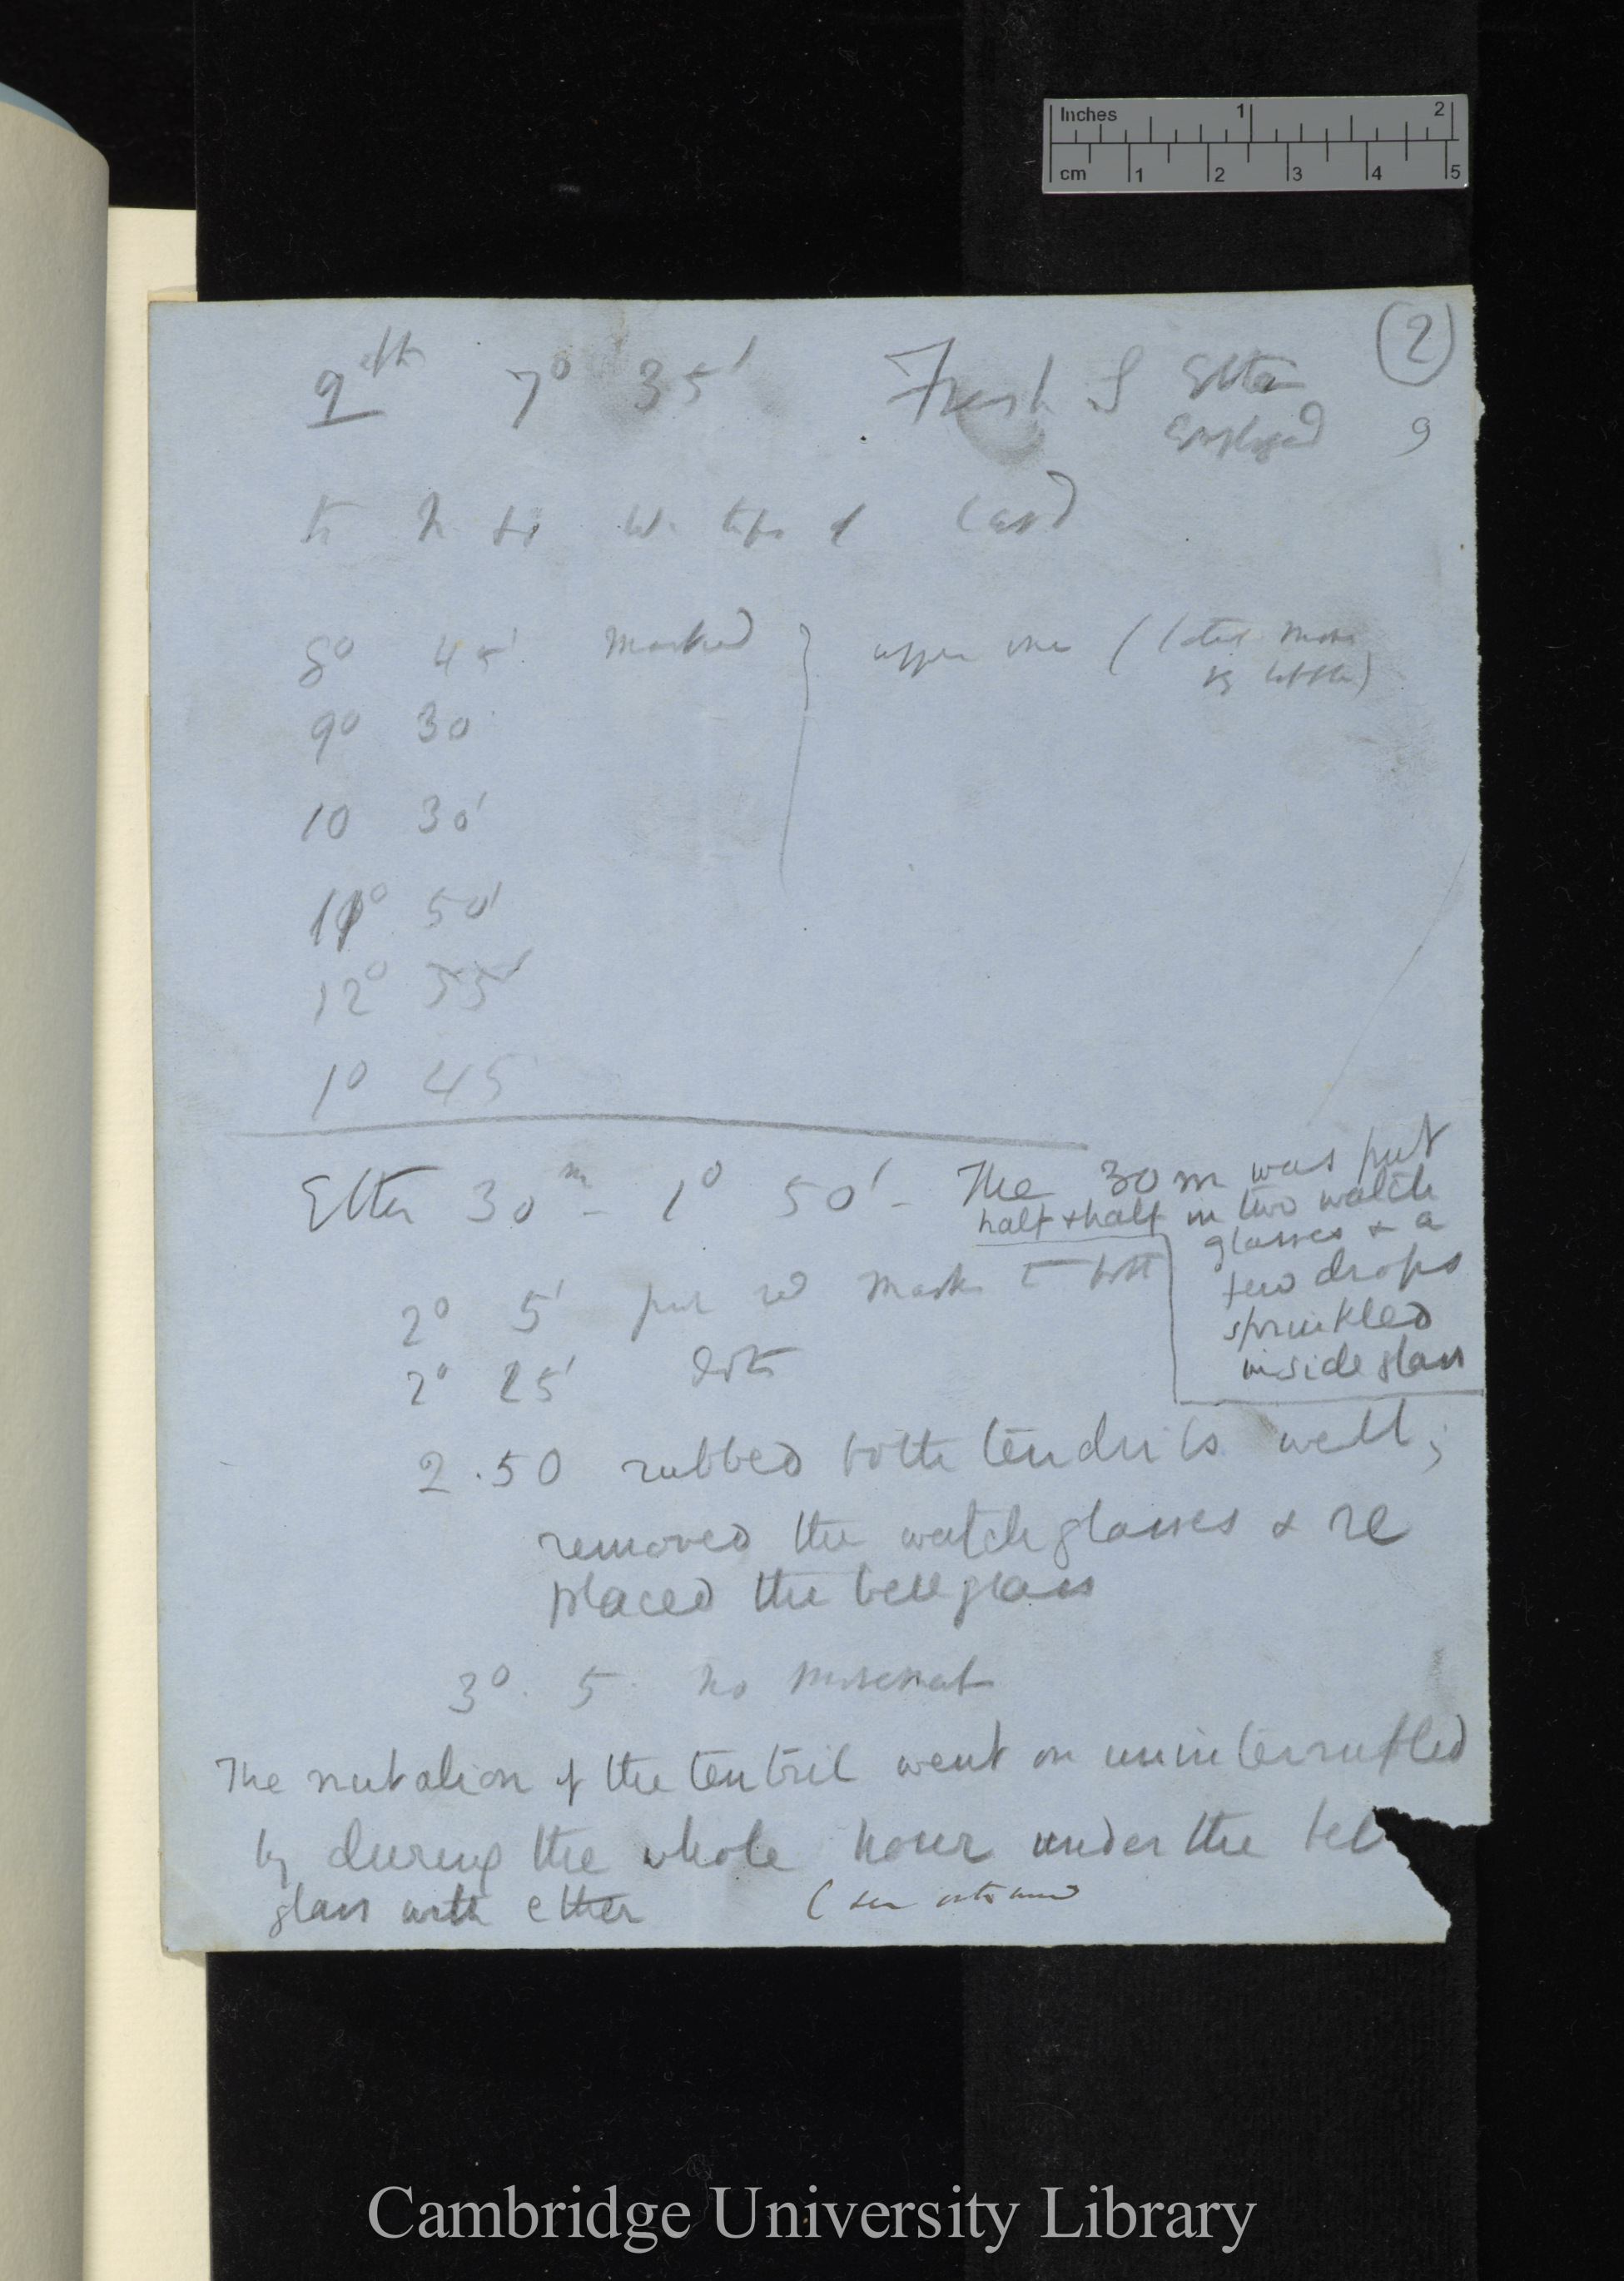 Inches 1 2
cm 1 2 3 4 5
(2)
9th 7° 35' Fresh Ether
Employed 9
8° 45' Marked } upper one (
9° 30
10 30'
11° 50'
12° 55'
1° 45
Ether 30m – 1° 50' – The 30 m was put
half & half in two watch
glasses & a
few drops
sprinkled
inside glass
2° 5' put red marks
2° 25' dots
2.50 rubbed both tendrils well;
removed the watch glasses & re
placed the bell glass
3° 5 no movement
The nutation of the tentril went on uninterrupted
ly during the whole hour under the bel
glass with ether (
Cambridge University Library